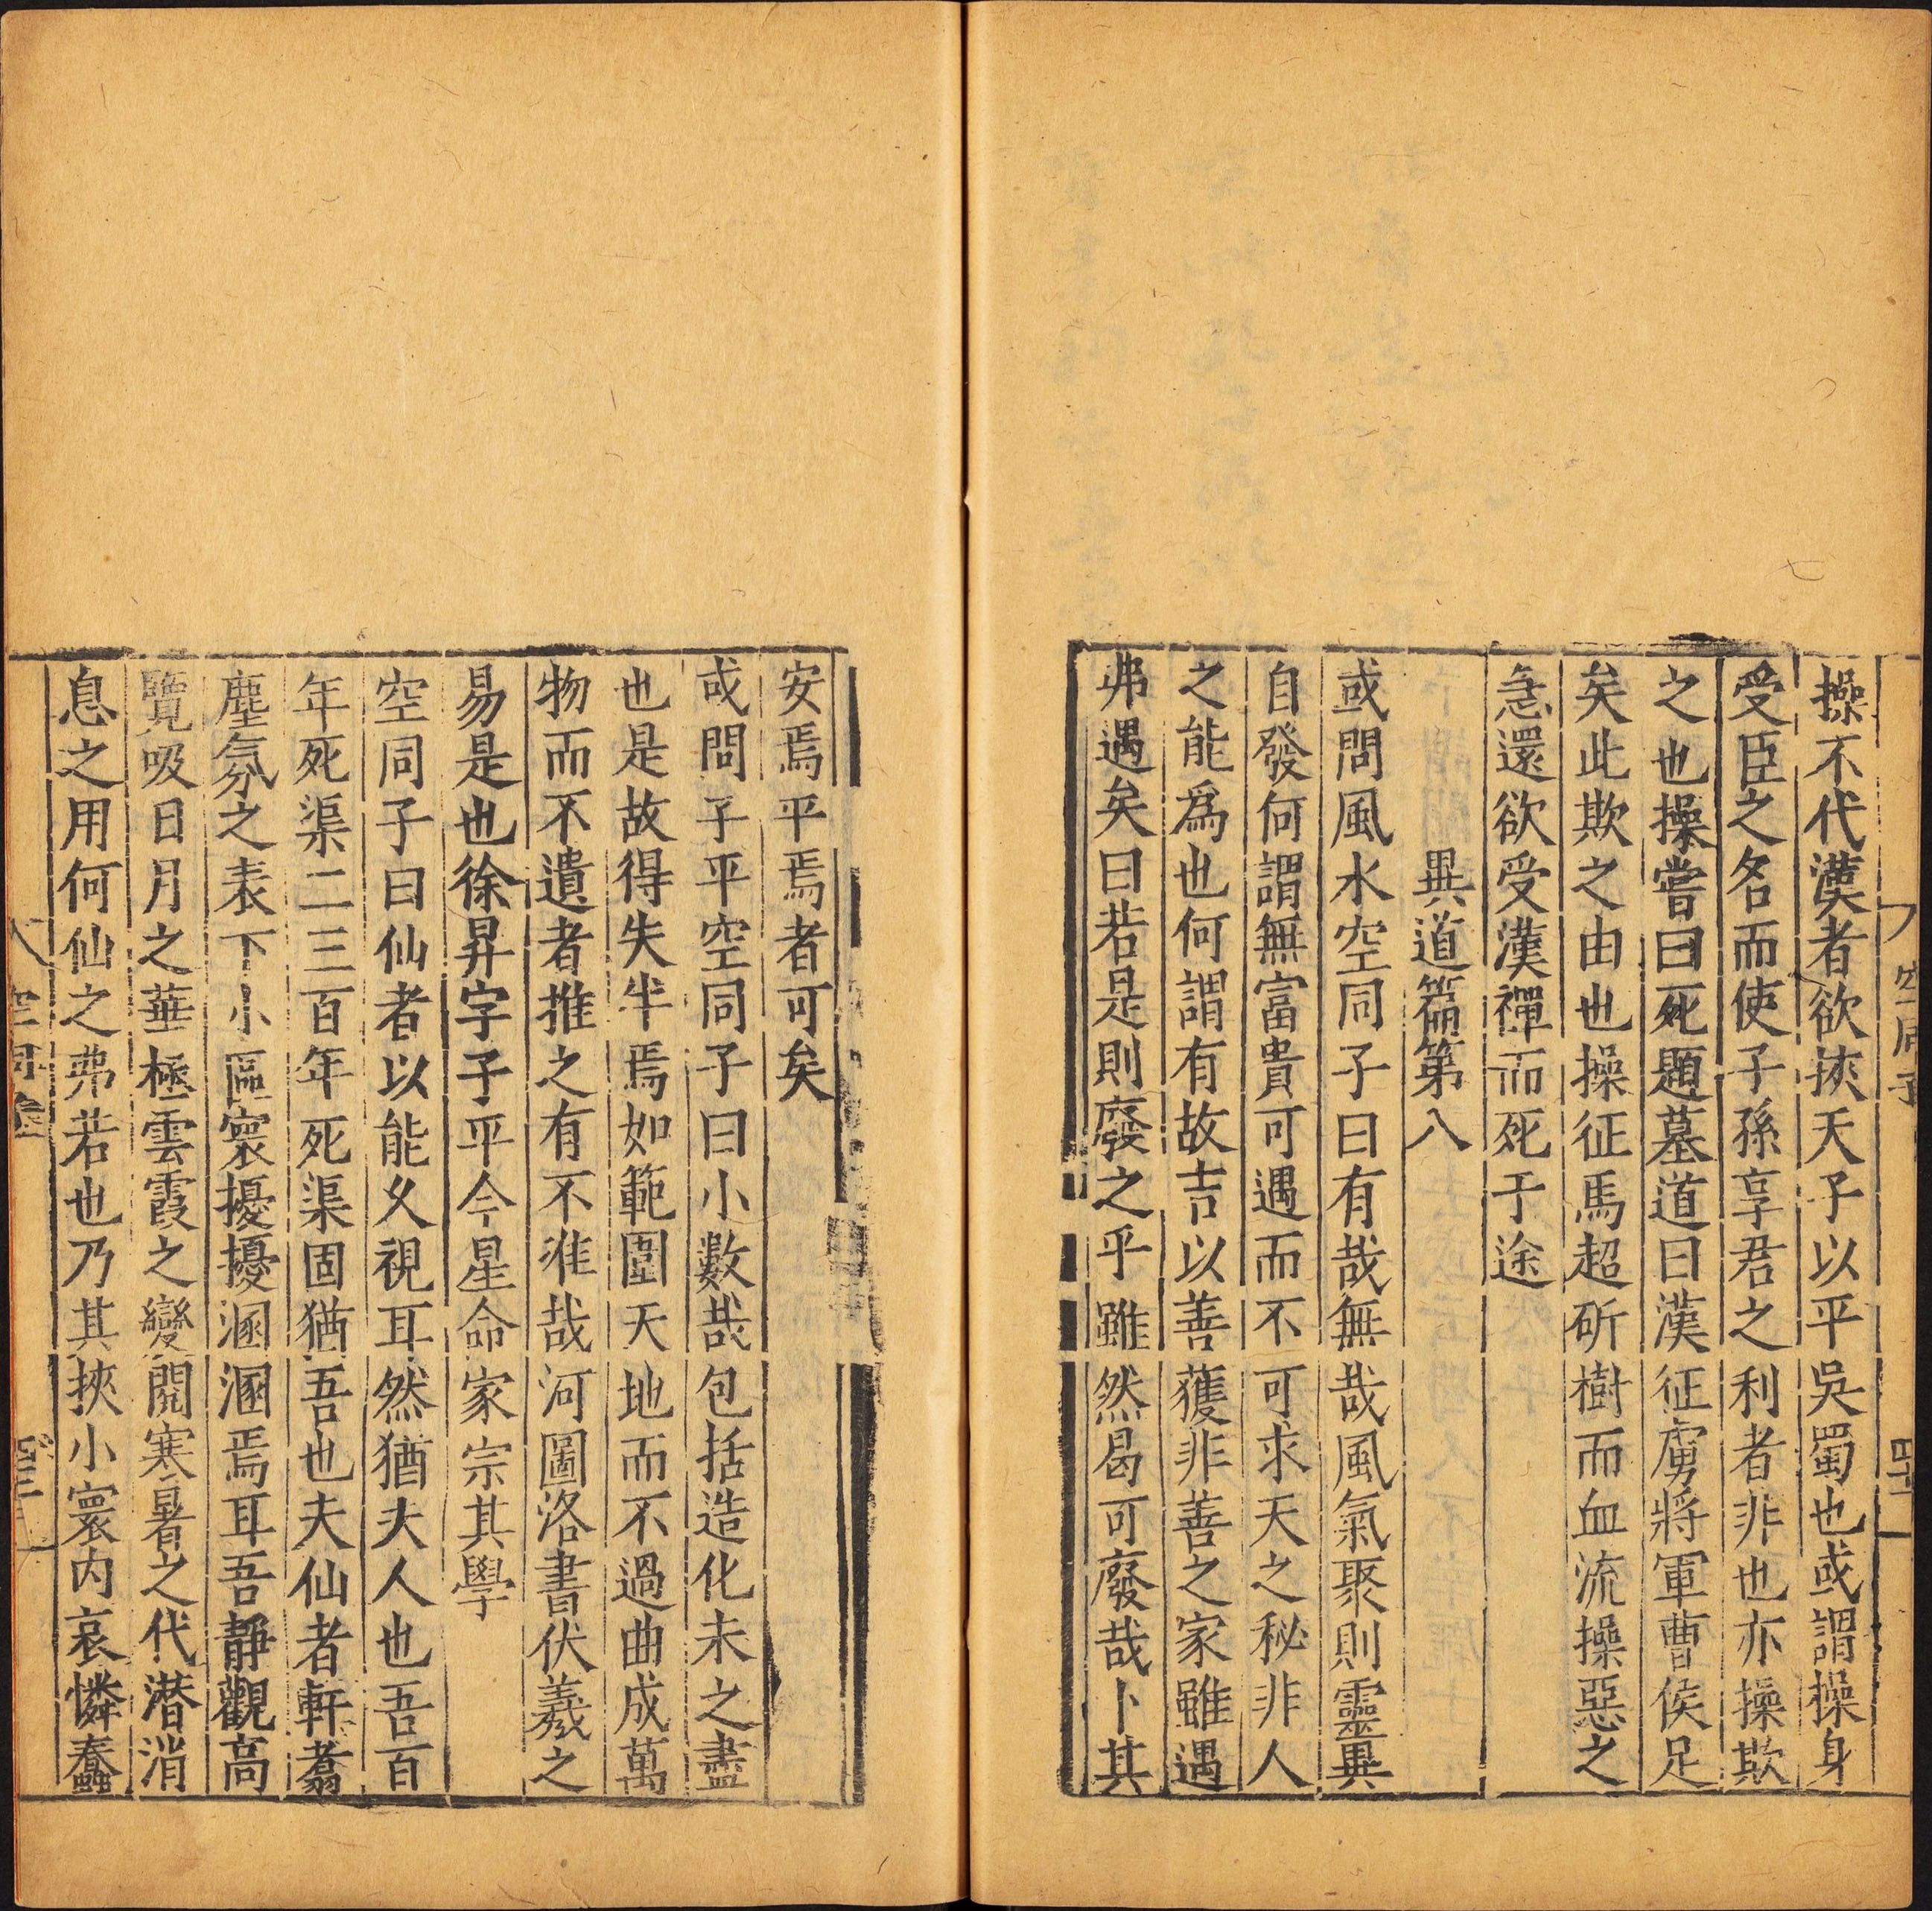 操不代漢者欲挾天子以平吳蜀也或謂操身
受臣之名而使子孫享君之利者非也亦操欺
之也操嘗曰死題墓道曰漢征虜將軍曹侯足
矣此欺之由也操征馬超斫樹而血流操惡之
急還欲受漢禪而死于途
異道篇第八
或問風水空同子曰有哉無哉風氣聚則靈異
自發何謂無富貴可遇而不可求天之秘非人
之能爲也何謂有故吉以善獲非善之家雖遇
弗遇矣曰若是則廢之乎雖然曷可廢哉卜其
安焉平焉者可矣
或問子平空同子曰小數哉包括造化未之盡
也是故得失半焉如範圍天地而不過曲成萬
物而不遺者推之有不准哉河圖洛書伏羲之
易是也徐昇字子平今星命家宗其學
空同子曰仙者以能久視耳然猶夫人也吾百
年死渠二三百年死渠固猶吾也夫仙者軒翥
塵氛之表下小區寰擾擾溷溷焉耳吾靜觀高
覽吸日月之華極雲霞之變閱寒暑之代潛消
息之用何仙之弗若也乃其挾小寰内哀憐蠢
空同子